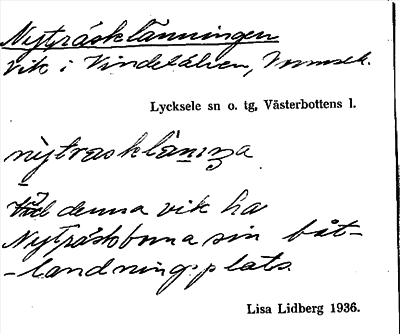 Nyträsklänningen
vik i Vindelälven,
Lycksele sn o. tg, Västerbottens l.
denna vik ha
Nyträskborna sin båt-
-landningsplats.
Lisa Lidberg 1936.